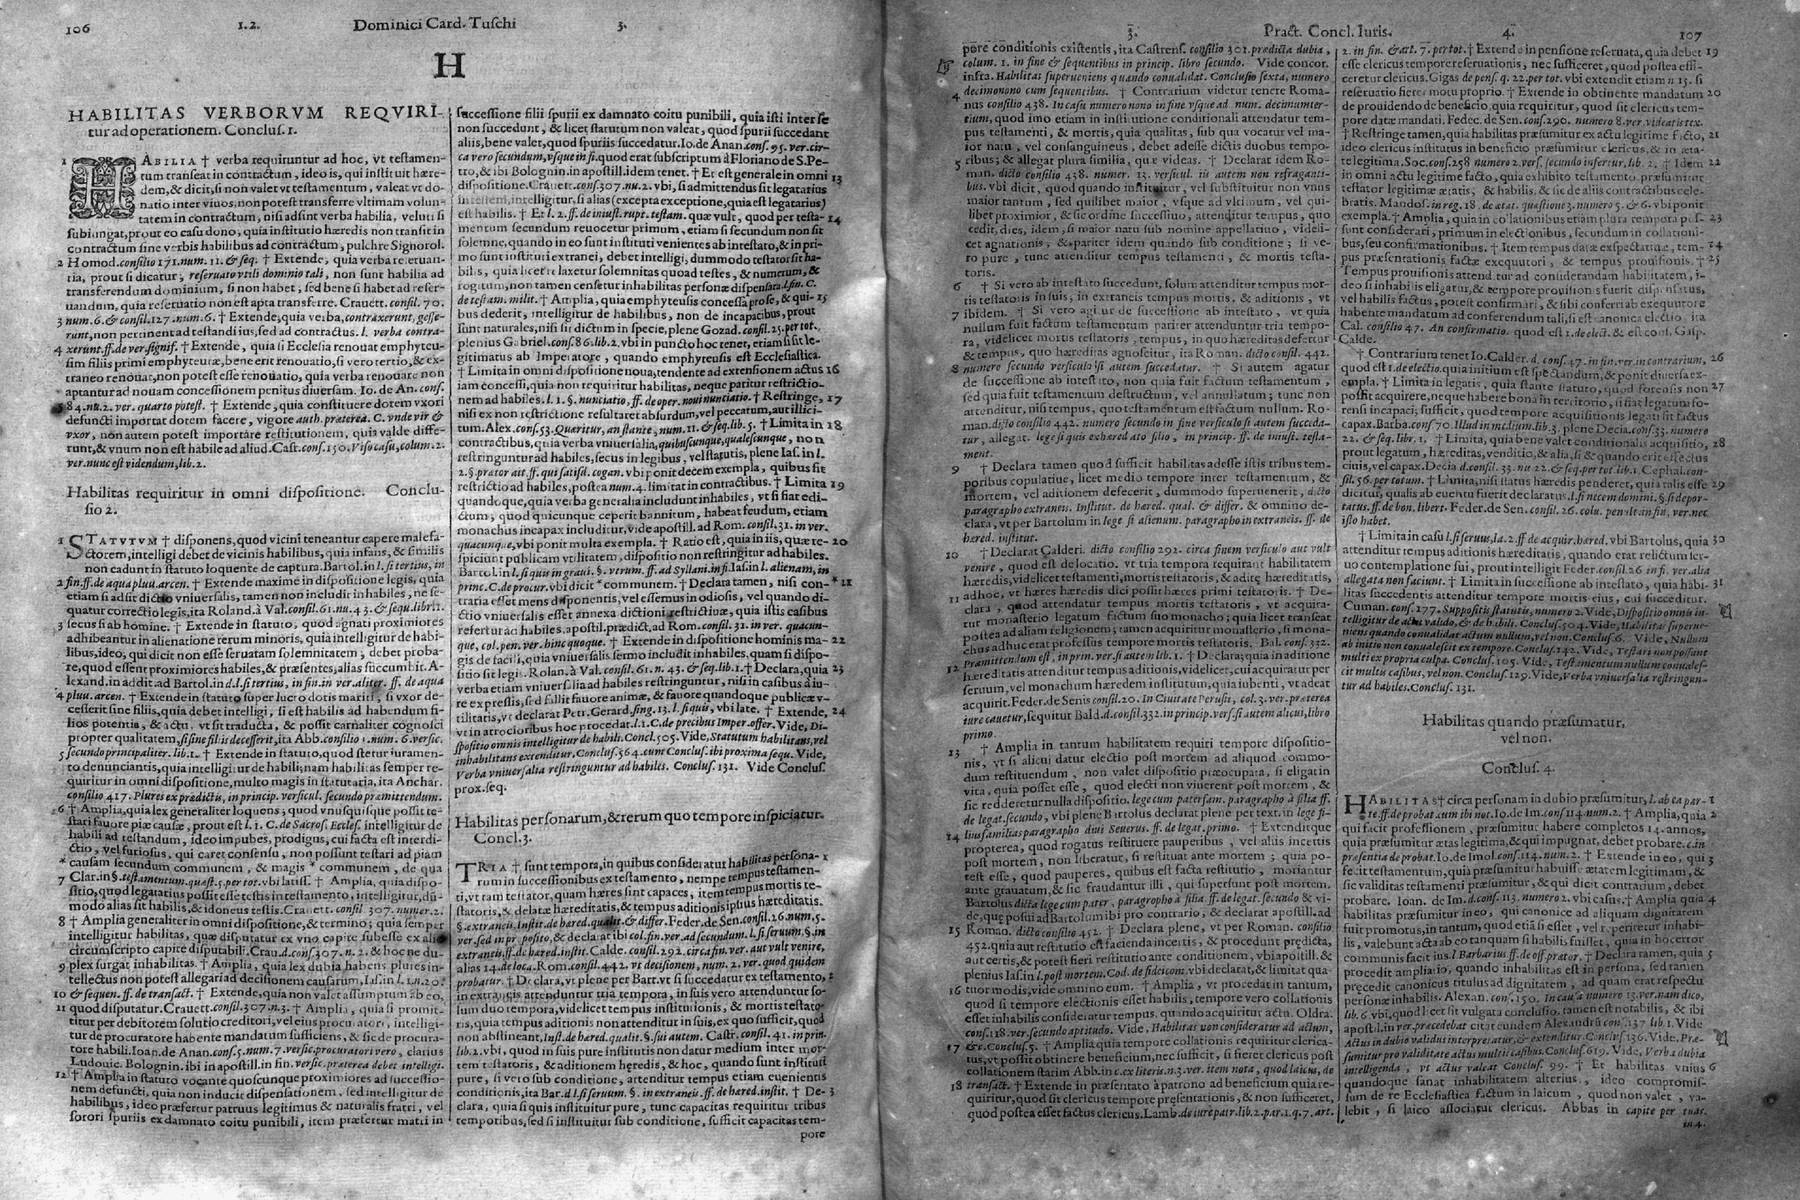 106
1.2.
Dominici Card. Tuſchi
3.
H
HABILITAS VERBORVM REQVIRI-
tur ad operationem. Concluſ. 1.
1 HABILIA † verba requiruntur ad hoc, vt teſtamen-
tum tranſeat in contractum, ideo is, qui inſtituit hære-
dem, & dicit, ſi non valet vt teſtamentum, valeat vt do-
natio inter viuos, non poteſt transferre vltimam volun-
tatem in contractum, niſi adſint verba habilia, veluti ſi
ſubiungat, prout eo caſu dono, quia inſtitutio hæredis non tranſit in
contractum ſine verbis habilibus ad contractum, pulchre Signorol.
2 Homod. conſilio 171. num. 11. & ſeq. † Extende, quia verba retetuan-
tia, prout ſi dicatur, reſeruato vtili dominio tali, non ſunt habilia ad
transferendum dominium, ſi non habet, ſed bene ſi habet ad reſer-
uandum, quia reſeruatio non eſt apta transferre. Crauett. conſil. 70.
3 num. 6. & conſil. 127. num. 6. † Extende, quia verba, contraxerunt, geſſe-
runt, non pertinent ad teſtandi ius, ſed ad contractus. l. verba contra-
4 xerunt. ff. de ver. ſignif. † Extende, quia ſi Eccleſia renouat emphyteu-
ſim filiis primi emphyteutæ, bene erit renouatio, ſi vero tertio, & ex-
traneo renouat, non poteſt eſſe renouatio, quia verba renouare non
aptantur ad nouam conceſſionem penitus diuerſam. Io. de An. conſ.
5 84. nu. 2. ver. quarto poteſt. † Extende, quia conſtituere dotem vxori
defuncti importat dotem facere, vigore auth. præterea. C. vnde vir &
vxor, non autem poteſt importare reſtitutionem, quia valde diffe-
runt, & vnum non eſt habile ad aliud. Caſt. conſ. 150. Viſo caſu, colum. 2.
ver. nunc eſt videndum, lib. 2.
Habilitas requiritur in omni diſpoſitione. Conclu-
ſio 2.
1 STATVTVM † diſponens, quod vicini teneantur capere malefa-
ctorem, intelligi debet de vicinis habilibus, quia infans, & ſimilis
non cadunt in ſtatuto loquente de captura. Bartol. in l. ſi tertius, in
2 fin. ff. de aqua pluu. arcen. † Extende maxime in diſpoſitione legis, quia
etiam ſi adſit dictio vniuerſalis, tamen non includir in habiles, ne ſe-
quatur correctio legis, ita Roland. à Val. conſ. 61. nu. 43. & ſequ. lib. 1.
3 ſecus ſi ab homine. † Extende in ſtatuto, quod agnati proximiores
adhibeantur in alienatione rerum minoris, quia intelligitur de habi-
libus, ideo, qui dicit non eſſe ſeruatam ſolemnitatem, debet proba-
re, quod eſſent proximiores habiles, & præſentes, alias ſuccumbit. A-
lexand. in addit. ad Bartol. in d. l. ſi tertius, in fin. in ver. aliter. ff. de aqua
4 pluu. arcen. † Extende in ſtatuto ſuper lucro dotis mariti, ſi vxor de-
ceſſerit ſine filiis, quia debet intelligi, ſi eſt habilis ad habendum fi-
lios potentia, & actu. vt ſit traducta, & poſſit carnaliter cognoſci
propter qualitatem, ſi ſine filiis deceſſerit, ita Abb. conſilio 1. num. 6. verſic.
5 ſecundo principaliter. lib. 1. † Extende in ſtatuto, quod ſtetur iuramen-
to denunciantis, quia intelligitur de habili; nam habilitas ſemper re-
quiritur in omni diſpoſitione, multo magis in ſtatutaria, ita Anchar.
conſilio 417. Plures ex prædictis, in princip. verſicul. ſecundo præmittendum.
6 † Amplia, quia lex generaliter loquens, quod vnuſquiſque poſſit te-
ſtari fauore piæ cauſæ, prout eſt l. 1. C. de Sacroſ. Eccleſ. intelligitur de
habili ad teſtandum, ideo impubes, prodigus, cui facta eſt interdi-
ctio, vel furioſus, qui caret conſenſu, non poſſunt teſtari ad piam
* cauſam ſecundum communem, & magis * communem, de qua
7 Clar. in §. teſtamentum. quæſt. 5. per tot. vbi latiſſ. † Amplia, quia diſpo-
ſitio, quod legatarius poſſit eſſe teſtis in teſtamento, intelligitur, dū-
modo alias ſit habilis, & idoneus teſtis. Crauett. conſil 307. numer. 2.
8 † Amplia generaliter in omni diſpoſitione, & termino; quia ſemper
intelligitur habilitas, quæ diſputatur ex vno capite ſubeſſe ex alio
circumſcripto capite diſputabili. Crau. d. conſ. 307. n. 2. & hoc ne du-
9 plex ſurgat inhabilitas. † Amplia, quia lex dubia habens plures in-
tellectus non poteſt allegari ad deciſionem cauſarum, Iaſ. in l. 1. n. 20.
10 & ſequen. ff. de tranſact. † Extende, quia non valet aſſumptum ab eo,
11 quod diſputatur. Crauett. conſ. 307. n. 3. † Amplia, quia ſi promit-
titur per debitorem ſolutio creditori, vel eius procuratori, intelligi-
tur de procuratore habente mandatum ſufficiens, & ſic de procura-
tore habili. Ioan. de Anan. conſ. 5. num. 7. verſic. procuratori vero, clarius
Ludouic. Bolognin. ibi in apoſtill. in fin. verſic. præterea debet intelligi.
12 † Amplia in ſtatuto vocante quoſcunque proximiores ad ſucceſſio-
nem defuncti, quia non inducit diſpenſationem, ſed intelligitur de
habilibus, ideo præfertur patruus legitimus & naturalis fratri, vel
ſorori ſpuriis ex damnato coitu punibili, item præfertur matri in
ſucceſſione filii ſpurii ex damnato coitu punibili, quia iſti inter ſe
non ſuccedunt, & licet ſtatutum non valeat, quod ſpurii ſuccedant
aliis, bene valet, quod ſpuriis ſuccedatur. Io. de Anan. conſ. 95. ver. cir-
ca vero ſecundum, vſque in fi. quod erat ſubſcriptum à Floriano de S. Pe-
tro, & ibi Bolognin. in apoſtill. idem tenet. † Et eſt generale in omni 13
diſpoſitione. Crauett. conſ. 307. nu. 2. vbi, ſi admittendus ſit legatarius
in teſtem, intelligitur, ſi alias (excepta exceptione, quia eſt legatarius)
eſt habilis. † Et l. 2. ff. de iniuſt. rupt. teſtam. quæ vult, quod per teſta- 14
mentum ſecundum reuocetur primum, etiam ſi ſecundum non ſit
ſolemne, quando in eo ſunt inſtituti venientes ab inteſtato, & in pri-
mo ſunt inſtituti extranei, debet intelligi, dummodo teſtator ſit ha-
bilis, quia licet relaxetur ſolemnitas quoad teſtes, & numerum, &
rogitum, non tamen cenſetur inhabilitas perſonæ diſpenſata. l. fin. C.
de teſtam. milit. † Amplia, quia emphyteuſis conceſſa pro ſe, & qui- 15
bus dederit, intelligitur de habilibus, non de incapacibus, prout
ſunt naturales, niſi ſit dictum in ſpecie, plene Gozad. conſil. 25. per tot.
plenius Gabriel. conſ. 86. lib. 2. vbi in puncto hoc tenet, etiam ſi ſit le-
gitimatus ab Imperatore, quando emphyteuſis eſt Eccleſiaſtica.
† Limita in omni diſpoſitione noua, tendente ad extenſionem actus 16
iam conceſſi, quia non requiritur habilitas, neque patitur reſtrictio-
nem ad habiles. l. 1. §. nunciatio, ff. de oper. noui nunciatio. † Reſtringe, 17
niſi ex non reſtrictione reſultaret abſurdum, vel peccatum, aut illici-
tum. Alex. conſ. 53. Quæritur, an ſtante, num. 11. & ſeq. lib. 5. † Limita in 18
contractibus, quia verba vniuerſalia, quibuſcunque, qualeſcunque, non
reſtringuntur ad habiles, ſecus in legibus, vel ſtatutis, plene Iaſ. in l.
2. §. prætor ait. ff. qui ſatiſd. cogan. vbi ponit decem exempla, quibus ſit
reſtrictio ad habiles, poſtea num. 4. limitat in contractibus. † Limita 19
quandoque, quia verba generalia includunt inhabiles, vt ſi fiat edi-
ctum, quod quicunque ceperit bannitum, habeat feudum, etiam
monachus incapax includitur, vide apoſtill. ad Rom. conſil. 31. in ver.
quacunque, vbi ponit multa exempla. † Ratio eſt, quia in iis, quæ re- 20
ſpiciunt publicam vtilitatem, diſpoſitio non reſtringitur ad habiles.
Bartol. in l. ſi quis in graui. §. vtrum. ff. ad Syllani. in fi. Iaſ. in l. alienam, in
princ. C. de procur. vbi dicit * communem. † Declara tamen, niſi con- * 21
traria eſſet mens diſponentis, vel eſſemus in odioſis, vel quando di-
ctio vniuerſalis eſſet annexa dictioni reſtrictiuæ, quia iſtis caſibus
refertur ad habiles. apoſtil. prædict. ad Rom. conſil. 31. in ver. quacun-
que, col. pen. ver. hinc quoque. † Extende in diſpoſitione hominis ma- 22
gis de facili, quia vniuerſalis ſermo includit inhabiles, quam ſi diſpo-
ſitio ſit legis. Rolan. à Val. conſil. 61. n. 43. & ſeq. lib. 1. † Declara, quia 23
verba etiam vniuerſalia ad habiles reſtringuntur, niſi in caſibus à iu-
re expreſſis, ſed fallit fauore animæ, & fauore quandoque publicæ v-
tilitatis, vt declarat Petr. Gerard. ſing. 13. l. ſi quis, vbi late. † Extende, 24
vt in atrocioribus hoc procedat. l. 1. C. de precibus Imper. offer. Vide, Di-
ſpoſitio omnis intelligitur de habili. Concl. 505. Vide, Statutum habilitans, vel
inhabilitans extenditur. Concluſ. 564. cum Concluſ. ibi proxima ſequ. Vide,
Verba vniuerſalia reſtringuntur ad habiles. Concluſ. 131. Vide Concluſ.
prox. ſeq.
Habilitas perſonarum, & rerum quo tempore inſpiciatur.
Concl. 3.
TRIA † ſunt tempora, in quibus conſideratur habilitas perſona- 1
rum in ſucceſſionibus ex teſtamento, nempe tempus teſtamen-
ti, vt ram teſtator, quam hæres ſint capaces, item tempus mortis te-
ſtatoris, & delatæ hæreditatis, & tempus aditionis ipſius hæreditatis.
§. extraneis. Inſtit. de hæred. qualit. & differ. Feder. de Sen. conſil. 26. num. 5.
ver. ſed in propoſito, & declarat ibi col. fin. ver. ad ſecundum. l. ſi ſeruum. §. in
extraneis. ff. de hæred. inſtit. Calde. conſil. 292. circa fin. ver. aut vult venire,
alias 14. de loca. Rom. conſil. 442. vt deciſionem, num. 2. ver. quod quidem
probatur. † Declara, vt plene per Bart. vt ſi ſuccedatur ex teſtamento, 2
in extraneis attenduntur tria tempora, in ſuis vero attenduntur ſo-
lum duo tempora, videlicet tempus inſtitutionis, & mortis teſtato-
ris, quia tempus aditionis non attenditur in ſuis, ex quo ſufficit, quod
non abſtineant, Inſt. de hæred. qualit. §. ſui autem. Caſtr. conſil. 41. in prin.
lib. 2. vbi, quod in ſuis pure inſtitutis non datur medium inter mor-
tem teſtatoris, & aditionem heredis, & hoc, quando ſunt inſtituti
pure, ſi vero ſub conditione, attenditur tempus etiam euenientis
conditionis, ita Bar. d. l. ſi ſeruum. §. in extraneis. ff. de hæred. inſtit. † De- 3
clara, quia ſi quis inſtituitur pure, tunc capacitas requiritur tribus
temporibus, ſed ſi inſtituitur ſub conditione, ſufficit capacitas tem-
pore
3.
Pract. Concl. Iuris.
4.
107
pore conditionis exiſtentis, ita Caſtrenſ. conſilio 301. prædicta dubia,
colum. 1. in fine & ſequentibus in princip. libro ſecundo. Vide concor.
infra. Habilitas ſuperueniens quando conualidat. Concluſio ſexta, numero
decimonono cum ſequentibus. † Contrarium videtur tenere Roma-
4 nus conſilio 438. In caſu numero nono in fine vſque ad num. decimumter-
tium, quod imo etiam in inſtitutione conditionali attendatur tem-
pus teſtamenti, & mortis, quia qualitas, ſub qua vocatur vel ma-
ior natu, vel conſanguineus, debet adeſſe dictis duobus tempo-
5 ribus; & allegat plura ſimilia, quæ videas. † Declarat idem Ro-
man. dicto conſilio 438. numer. 13. verſicul. in autem non refraganti-
bus. vbi dicit, quod quando inſtituitur, vel ſubſtituitur non vnus
maior tantum, ſed quilibet maior, vſque ad vltimum, vel qui-
libet proximior, & ſic ordine ſucceſſiuo, attenditur tempus, quo
cedit dies, idem, ſi maior natu ſub nomine appellatiuo, videli-
cet agnationis, & pariter idem quando ſub conditione; ſi ve-
ro pure, tunc attenditur tempus teſtamenti, & mortis teſta-
toris.
6 † Si vero ab inteſtato ſuccedunt, ſolum attenditur tempus mor-
tis teſtatoris in ſuis, in extraneis tempus mortis, & aditionis, vt
7 ibidem. † Si vero agitur de ſucceſſione ab inteſtato, vt quia
nullum fuit factum teſtamentum pariter attenduntur tria tempo-
ra, videlicet mortis teſtatoris, tempus, in quo hæreditas defertur
& tempus, quo hæreditas agnoſcitur, ita Roman. dicto conſilio 442.
8 numero ſecundo verſiculo ſi autem ſuccedatur. † Si autem agatur
de ſucceſſione ab inteſtato, non quia fuit factum teſtamentum,
ſed quia fuit teſtamentum deſtructum, vel annullatum; tunc non
attenditur, niſi tempus, quo teſtamentum eſt factum nullum. Ro-
man. dicto conſilio 442. numero ſecundo in fine verſiculo ſi autem ſucceda-
tur, allegat. lege ſi quis exheredato filio, in princip. ff. de iniuſt. teſta-
ment.
9 † Declara tamen quod ſufficit habilitas adeſſe iſtis tribus tem-
poribus copulatiue, licet medio tempore inter teſtamentum, &
mortem, vel aditionem defecerit, dummodo ſuperuenerit, dicto
paragrapho extraneis. Inſtitut. de hæred. qual. & differ. & omnino de-
clara, vt per Bartolum in lege ſi alienum. paragrapho in extraneis. ff. de
hæred. inſtitut.
10 † Declarat Calderi. dicto conſilio 292. circa finem verſiculo aut vult
venire, quod eſt de locatio. vt tria tempora requirant habilitatem
hæredis, videlicet teſtamenti, mortis teſtatoris, & aditæ hæreditatis,
11 adhoc, vt hæres hæredis dici poſſit hæres primi teſtatoris. † De-
clara, quod attendatur tempus mortis teſtatoris, vt acquira-
tur monaſterio legatum factum ſuo monacho; quia licet tranſeat
poſtea ad aliam religionem; tamen acquiritur monaſterio, ſi mona-
chus adhuc erat profeſſus tempore mortis teſtatoris. Bal. conſ. 332.
12 Præmittendum eſt, in prin. ver. ſi autem lib. 1. † Declara; quia in aditione
hæreditatis attenditur tempus aditionis, videlicet, cui acquiratur per
ſeruum, vel monachum hæredem inſtitutum, quia iubenti, vt adeat
acquirit. Feder. de Senis conſil. 20. In Ciuitate Peruſii, col. 3. ver. præterea
iure cauetur, ſequitur Bald. d. conſil. 332. in princip. verſ. ſi autem alicui, libro
primo.
13 † Amplia in tantum habilitatem requiri tempore diſpoſitio-
nis, vt ſi alicui datur electio poſt mortem ad aliquod commo-
dum reſtituendum, non valet diſpoſitio præoccupata, ſi eligat in
vita, quia poſſet eſſe, quod electi non viuerent poſt mortem, &
ſic redderetur nulla diſpoſitio. lege cum pater ſam. paragrapho à filia ff.
de legat. ſecundo, vbi plene Bartolus declarat plene per text. in lege fi-
lius familias paragrapho diui Seuerus. ff. de legat. primo. † Extendit que
14 propterea, quod rogatus reſtituere pauperibus, vel aliis incertis
poſt mortem, non liberatur, ſi reſtituat ante mortem; quia po-
teſt eſſe, quod pauperes, quibus eſt facta reſtitutio, moriantur
ante grauatum, & ſic fraudantur illi, qui ſuperſunt poſt mortem.
Bartolus dicta lege cum pater, paragrapho à filia. ff. de legat. ſecundo & vi-
de, quę poſui ad Bartolum ibi pro contrario, & declarat apoſtill. ad
15 Roman. dicto conſilio 452. † Declara plene, vt per Roman. conſilio
452. quia aut reſtitutio eſt facienda incertis, & procedunt prędicta,
aut certis, & poteſt fieri reſtitutio ante conditionem, vbi apoſtill. &
plenius Iaſ. in l. poſt mortem. Cod. de fideicom. vbi declarat, & limitat qua-
16 tuor modis, vide omnino eum. † Amplia, vt procedat in tantum,
quod ſi tempore electionis eſſet habilis, tempore vero collationis
eſſet inhabilis conſideratur tempus. quando acquiritur actu. Oldra.
conſ. 118. ver. ſecundo aptitudo. Vide, Habilitas non conſideratur ad actum,
17 &c. Concluſ. 5. † Amplia quia tempore collationis requiritur clerica-
tus, vt poſſit obtinere beneficium, nec ſufficit, ſi fieret clericus poſt
collationem ſtatim Abb. in c. ex literis. n. 3. ver. item nota, quod laicus, de
18 tranſact. † Extende in præſentato à patrono ad beneficium quia re-
quiritur, quod ſit clericus tempore præſentationis, & non ſufficeret,
quod poſtea eſſet factus clericus, Lamb. de iure patr. lib. 2. par. 1. q. 7. art.
2. in fin. & art. 7. per tot. † Extende in penſione reſeruata, quia debet 19
eſſe clericus tempore reſeruationis, nec ſufficeret, quod poſtea effi-
ceretur clericus. Gigas de penſ. q. 22. per tot. vbi extendit etiam n. 15. ſi
reſeruatio fieret motu proprio. † Extende in obtinente mandatum 20
de prouidendo de beneficio, quia requiritur, quod ſit clericus tem-
pore datæ mandati. Fedec. de Sen. conſ. 290. numero 8. ver. videatis tex.
† Reſtringe tamen, quia habilitas præſumitur ex actu legitime facto, 21
ideo clericus inſtitutus in beneficio præſumitur clericus, & in æta-
te legitima. Soc. conſ. 258 numero 2. verſ. ſecundo inſertur. lib. 2. † Idem 22
in omni actu legitime facto, quia exhibito teſtamento præſumitur
teſtator legitimæ ætatis, & habilis, & ſic de aliis contractibus cele-
bratis. Mandoſ. in reg. 18. de ætat. quæſtione 3. numero 5. & 6. vbi ponit
exempla. † Amplia, quia in collationibus etiam plura tempora poſ- 23
ſunt conſiderari, primum in electionibus, ſecundum in collationi-
bus, ſeu confirmationibus. † Item tempus datæ expectatiuæ, tem- 24
pus præſentationis factæ executori, & tempus prouiſionis. † 25
Tempus prouiſionis attenditur ad conſiderandam habilitatem, i-
deo ſi inhabilis eligatur, & tempore prouiſionis fuerit diſpenſatus,
vel habilis factus, poteſt confirmari, & ſibi conferri ab exequutore
habente mandatum ad conferendum tali, ſi eſt canonica electio, ita
Cal. conſilio 47. An confirmatio. quod eſt 1. de elect. & eſt conſ. Gaſp.
Calde.
† Contrarium tenet Io. Calder. d. conſ. 47. in fin. ver. in contrarium, 26
quod eſt 1. de electio. quia initium eſt ſpectandum, & ponit diuerſa ex-
empla. † Limita in legatis, quia ſtante ſtatuto, quod forenſis non 27
poſſit acquirere, neque habere bona in territorio, ſi fiat legatum fo-
renſi incapaci; ſufficit, quod tempore acquiſitionis legati ſit factus
capax. Barba. conſ. 70. Illud in medium. lib. 3. plene Decia. conſ. 33. numero
22. & ſeq. libr. 1. † Limita, quia bene valet conditionalis acquiſitio, 28
prout legatum, hæreditas, venditio, & alia, ſi & quando erit effectus
ciuis, vel capax. Decia. d. conſ. 33. nu 22. & ſeq. per tot. lib. 1. Cephal. con-
ſil. 56. per totum. † Limita, niſi ſtatus hæredis penderet, quia talis eſſe 29
dicitur, qualis ab euentu fuerit declaratus. l. ſi necem domini. §. ſi depor-
tatus. ff. de bon. libert. Feder. de Sen. conſil. 26. colu. penult. in fin. ver. nec
iſto habet.
† Limita in caſu l. ſi ſeruus, la. 2. ff. de acquir. hæred. vbi Bartolus, quia 30
attenditur tempus aditionis hæreditatis, quando erat relictum ſer-
uo contemplatione ſui, prout intelligit Feder. conſil. 26 in fi. ver. alia
allegata non faciunt. † Limita in ſucceſſione ab inteſtato, quia habi- 31
litas ſuccedentis attenditur tempore mortis eius, cui ſucceditur.
Cuman. conſ. 177. Suppoſitis ſtatutis, numero 2. Vide, Diſpoſitio omnis in-
telligitur de actu valido, & de habili. Concluſ. 504. Vide, Habilitas ſuperue-
niens quando conualidat actum nullum, vel non. Concluſ. 6. Vide, Nullum
ab initio non conualeſcit ex tempore. Concluſ. 142. Vide, Teſtari non poſſunt
multi ex propria culpa. Concluſ. 105. Vide, Teſtamentum nullum conualeſ-
cit multis caſibus, vel non. Concluſ. 129. Vide, Verba vniuerſalia reſtringun-
tur ad habiles. Concluſ. 131.
Habilitas quando præſumatur,
vel non.
Concluſ. 4.
HABILITAS † circa perſonam in dubio præſumitur, l. ab ea par- 1
te. ff. de probat. cum ibi not. Io. de Im. conſ 114. num. 2. † Amplia, quia 2
qui facit profeſſionem, præſumitur habere completos 14. annos,
quia præſumitur ætas legitima, & qui impugnat, debet probare. c. in
præſentia de probat. Io. de Imol. conſ. 114. num. 2. † Extende in eo, qui 3
fecit teſtamentum, quia præſumitur habuiſſe ætatem legitimam, &
ſic validitas teſtamenti præſumitur, & qui dicit contrarium, debet
probare. Ioan. de Im. d. conſ. 113. numero 2. vbi caſus. † Amplia quia 4
habilitas præſumitur in eo, qui canonice ad aliquam dignitatem
fuit promotus, in tantum, quod etiā ſi eſſet, vel reperiretur inhabi-
lis, valebunt acta ab eo tanquam ſi habilis fuiſſet, quia in hoc error
communis facit ius. l Barbarius ff. de off. prætor. † Declara tamen, quia 5
procedit ampliatio, quando inhabilitas eſt in perſona, ſed tamen
præcedit canonicus titulus ad dignitatem, ad quam erat reſpectu
perſonæ inhabilis. Alexan. conſ. 150. In cauſa numero 13. ver. nam dico,
lib. 6. vbi, quod licet ſit vulgata concluſio. tamen eſt notabilis, & ibi
apoſtil. in ver. præcedebat citat eundem Alexandrū conſ. 137 lib. 1. Vide
Actus in dubio validus interpretatur, & extenditur. Concluſ. 136. Vide, Præ-
ſumitur pro validitate actus multis caſibus. Concluſ. 619. Vide, Verba dubia
intelligenda, vt actus valeat Concluſ. 99. † Et habilitas vnius 6
quandoque ſanat inhabilitatem alterius, ideo compromiſ-
ſum de re Eccleſiaſtica factum in laicum, quod non valet, va-
lebit, ſi laico aſſociatur clericus. Abbas in capite per tuas.
in 4.